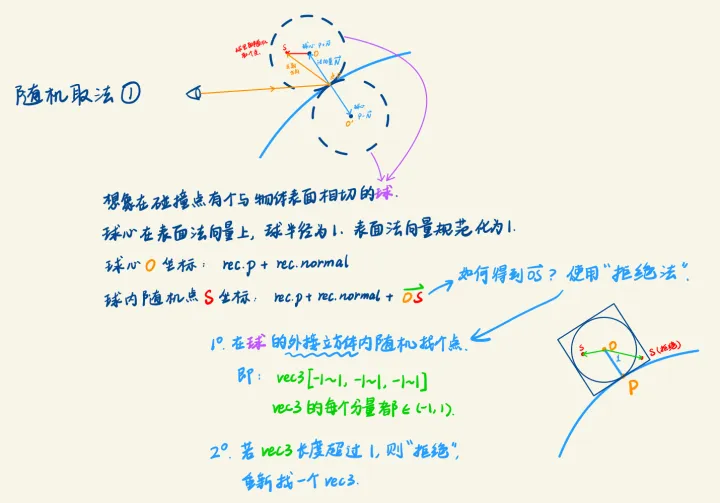 随机取法①
球里面随机
取个点
S
球心 P+N
O
法向量N
P
球心
P-N
O'
想象在碰撞点有个与物体表面相切的球.
球心在表面法向量上, 球半径为1. 表面法向量规范化为1.
球心 O 坐标: rec.p + rec.normal
球内随机点 S 坐标: rec.p + rec.normal + OS
如何得到OS? 使用“拒绝法”.
1°. 在球的外接立方体内随机找个点.
即: vec3 [-1~1, -1~1, -1~1]
vec3 的每个分量都 ∈ (-1, 1).
2°. 若 vec3 长度超过 1, 则“拒绝”,
重新找一个 vec3.
S
O
1
S(拒绝)
P